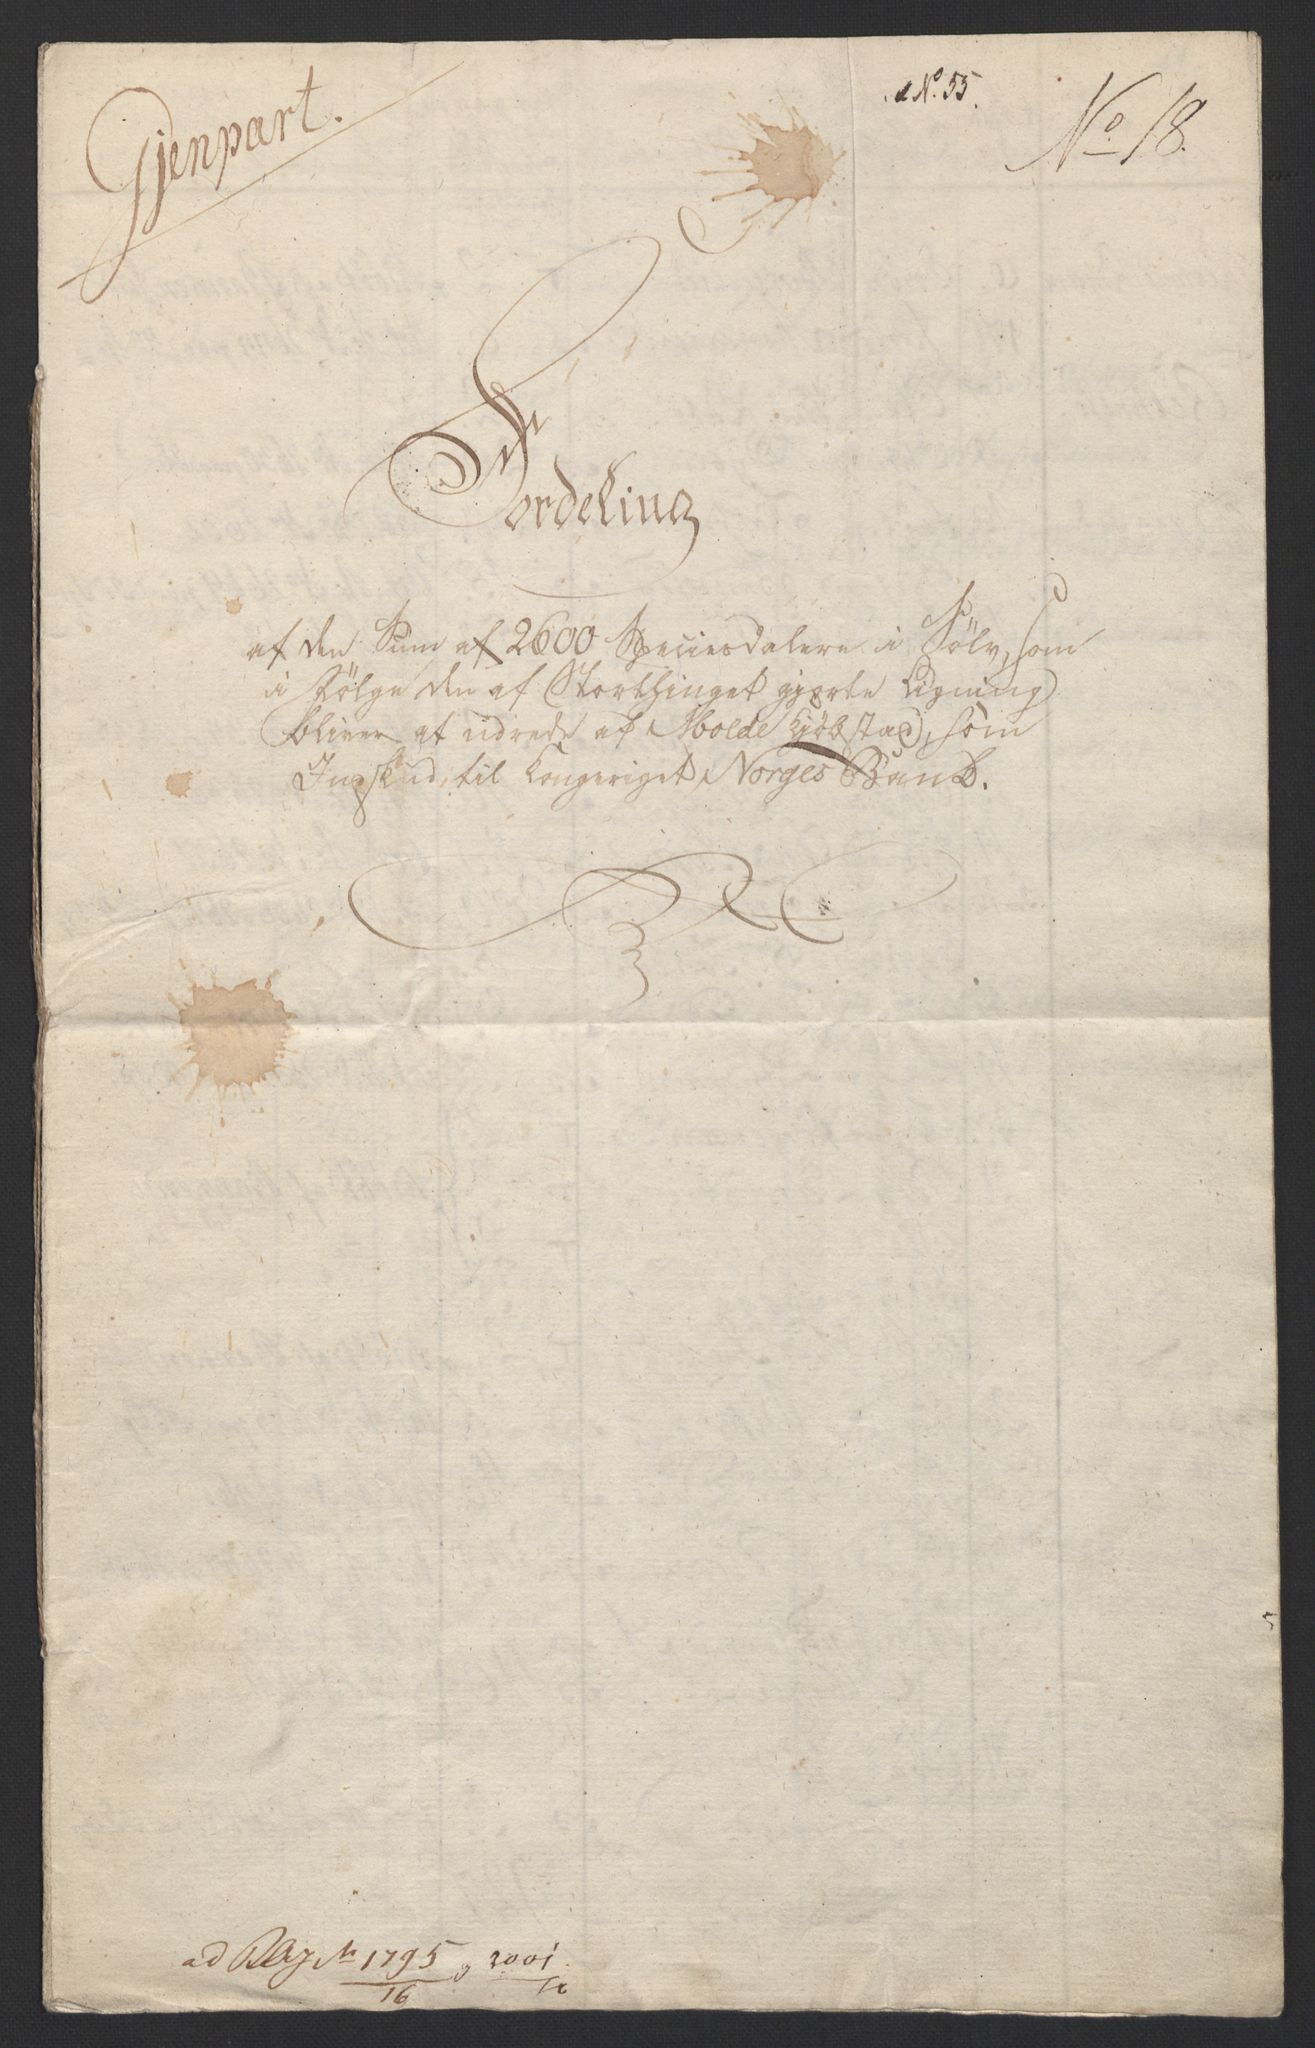 Gjenpart.
No. 55.
No 18.
Fordeling
af den Sum af 2600 Speciesdalere i Sølv, som
i Følge den af Storthinget gjorte Ligning
bliver at udrede af Molde Kjøbstad, som
Inpskud til Kongeriget Norges Bank.
ad No 1795 / 16 2001